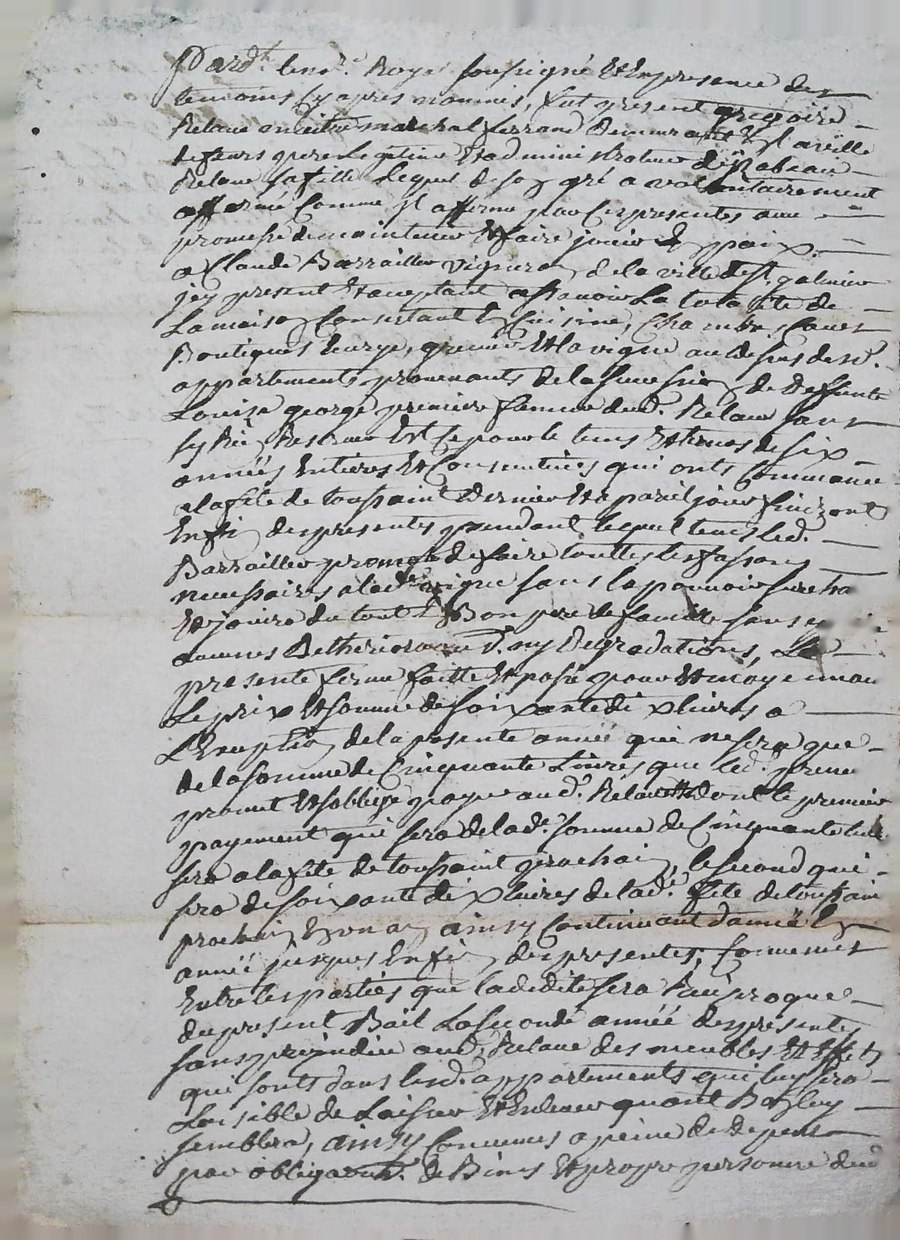 Pard.t le no.re Royal soussigné Et En presence des
temoins cy apres nommés, fut present gregoire
Relave maitre marechal ferrand Demeurant
pere Legitime Et administrateur de
Relave sa fille Lequel de son gré a volontairement
affermé Comme Jl afferme par Ces presentes avec
promesse de maintenir Et faire jouir En paix
a Claude Barrailler vigneron de la ville de St galmier
jcy present Et acceptant assavoir La totalité de
La maison Consistant En Cuisine, Chambre, Caves
Boutiques grenier Et la vigne au dessus desd.
appartements provenants de la succession de Deffunte
Louise george premiere famme dud. Relave sans
sy Rien Reserver Et Ce pour le tems Et termes de six
années Entieres Et Consecutives qui onts Commancé
a la fete de toussaint Dernier Et a pareil jour finiront
En fin des presentes pendant lequel tems led.
Barrailler promet de faire touttes les fassons
necessaires a lad.e vigne sans la pouvoir
Et jouira du tout En Bon pere de famille sans y
Commes Detherioration ny Degradations, La
presente ferme faitte Et passé pour Et moyennant
Le prix Et somme de soixante dix livres a
L'Exeption de la presente année qui ne sera que
de la somme de Cinquante Livres que led. preneur
promet Et s'obblige payer aud. Relave dont le premier
payement qui sera de lad.e somme de Cinquante livres
sera a la fete de toussaint prochain, le second qui
sera de soixante dix livres de lad.e fete de toussain
prochain En un an ainsy Continuant d'année En
année jusques En fin des presentes, Convenus
Entre les parties que la dedite sera Reciproque
du present Bail La seconde année des presentes
sans prejudice aud. Relave des meubles Et Effets
qui sonts dans lesd. appartements qui luy sera
Loisible de Laisser Et Enlever quant Bon luy
semblera, ainsy Convenus a peine de depens
par obligation de Biens Et propre personne dud